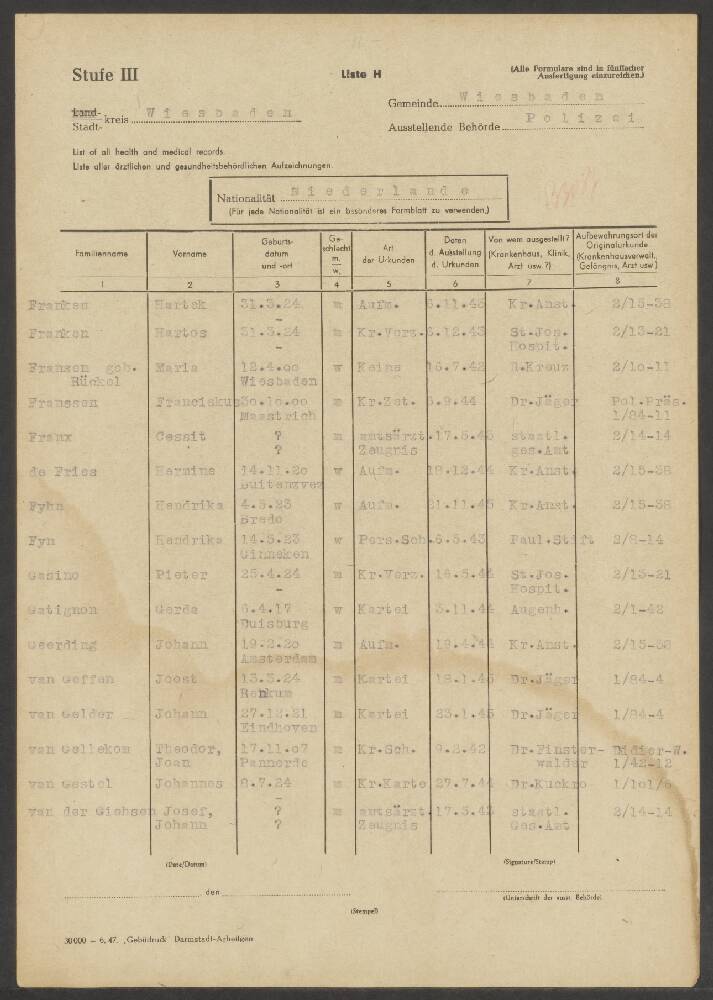 Stufe III
Liste H
(Alle Formulare sind in fünffacher
Ausfertigung einzureichen.)
Land-
Stadt- kreis Wiesbaden
Gemeinde Wiesbaden
Ausstellende Behörde Polizei
List of all health and medical records.
Liste aller ärztlichen und gesundheitsbehördlichen Aufzeichnungen.
Nationalität Niederlande
(Für jede Nationalität ist ein besonderes Formblatt zu verwenden.)
Familienname Vorname Geburts-datum und -ort Ge-schlecht m. w. Art der Urkunden Daten d. Ausstellung d. Urkunden Von wem ausgestellt? (Krankenhaus, Klinik, Arzt usw.?) Aufbewahrungsort der Originalurkunde (Krankenhausverwalt., Gefängnis, Arzt usw.)
1 2 3 4 5 6 7 8
Franken Hartek 31.3.24 m Aufn. Kr.Anst. 2/15-38
-
Franken Hartos 31.3.24 m Kr.Verz. 6.12.43 St.Jos. 2/13-21
- Hospit.
Fransen geb. Maria 12.4.00 w Keine 15.7.42 R.Kreuz 2/10-11
Rückel Wiesbaden
Franssen Franciskus 30.10.00 m Kr.Zet. .9.44 Dr.Jäger Pol.Präs.
Maastrich 1/84-11
Franx Cessit ? m amtsärzt. 17.5.43 staatl. 2/14-14
? Zeugnis ges.Amt
de Fries Hermine 14.11.20 w Aufn. 18.12.44 Kr.Anst. 2/15-38
Buitenzvez
Fyhn Hendrika 4.5.23 w Aufn. 21.11.45 Kr.Anst. 2/15-38
Bredo
Fyn Hendrika 14.5.23 w Pers.Sch. 6.5.43 Paul.Stift 2/8-14
Ginneken
Gasino Pieter 25.4.24 m Kr.Verz. 16.5.44 St.Jos. 2/13-21
- Hospit.
Gatignon Gerda 6.4.17 w Kartei 3.11.44 Augenh. 2/1-42
Duisburg
Geerding Johann 19.2.20 m Aufn. 19.4.44 Kr.Anst. 2/15-38
Amsterdam
van Geffen Joost 13.3.24 m Kartei 18.1.45 Dr.Jäger 1/84-4
Renkum
van Gelder Johann 27.12.21 m Kartei 23.1.45 Dr.Jäger 1/84-4
Eindhoven
van Gellekom Theodor, 17.11.07 m Kr.Sch. 9.2.42 Dr.Finster- Didier-W.
Joan Pannerde walder 1/42-12
van Gestel Johannes 8.7.24 m Kr.Karte 27.7.44 Dr.Kuckro 1/101/6
-
van der Giehsen Josef, ? m amtsärzt. 17.5.43 staatl. 2/14-14
Johann ? Zeugnis Ges.Amt
(Date/Datum)
(Signature/Stamp)
den
(Unterschrift der ausst. Behörde)
(Stempel)
30000 – 6. 47. „Gebidruck" Darmstadt-Arheilgen